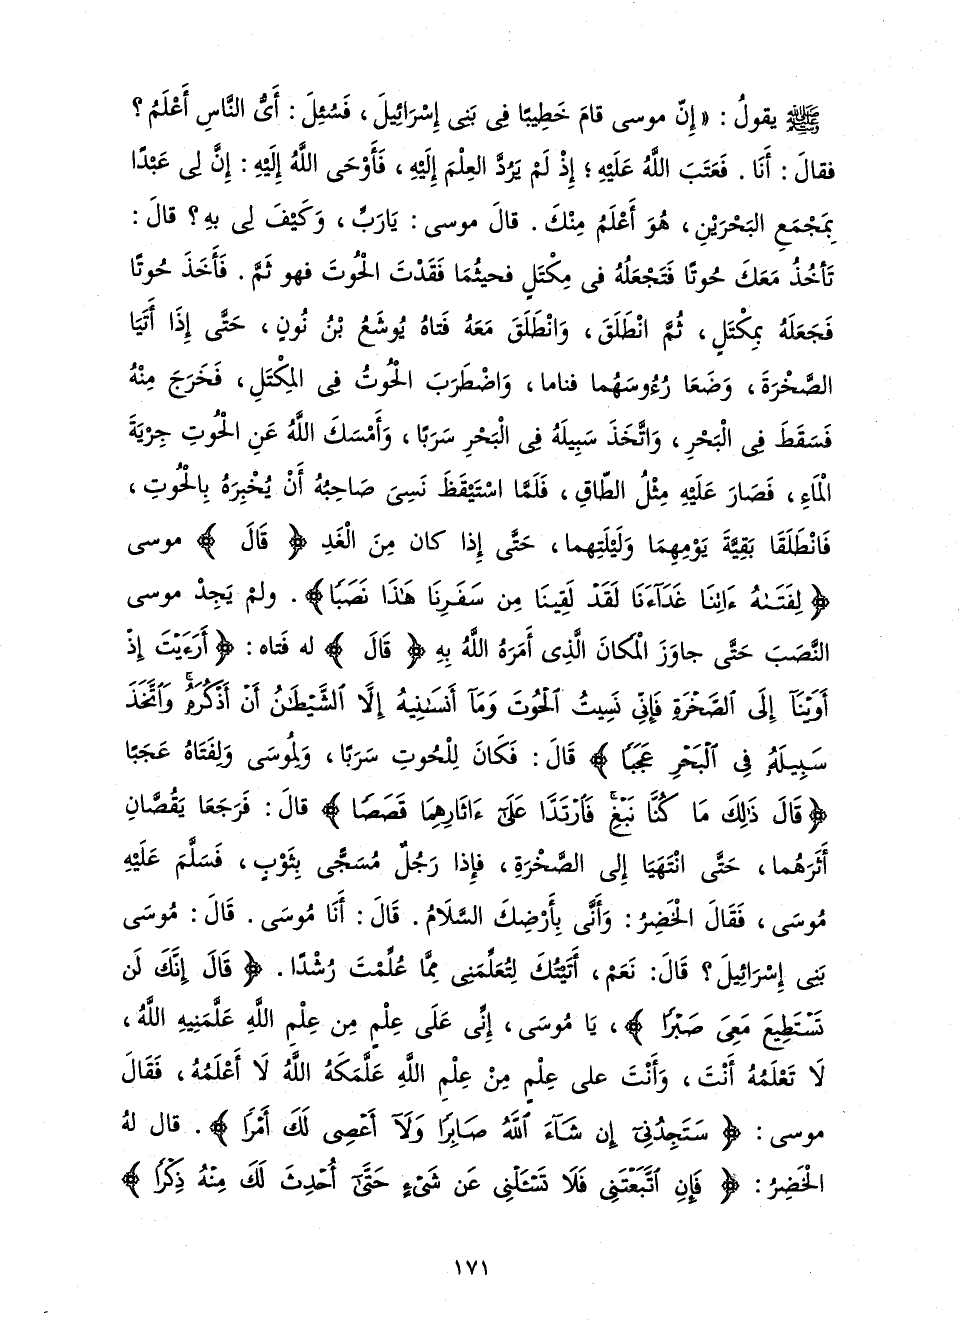 ﷺ يقولُ : « إِنّ موسى قامَ خَطِيبًا فِى بَنِى إِسْرَائِيلَ ، فَسُئِلَ : أَىُّ النَّاسِ أَعْلَمُ ؟
فقالَ : أَنَا . فَعَتَبَ اللَّهُ عَلَيْهِ ؛ إِذْ لَمْ يَرُدَّ العِلْمَ إِلَيْهِ ، فَأَوْحَى اللَّهُ إِلَيْهِ : إِنَّ لِى عَبْدًا
بِمَجْمَعِ البَحْرَيْنِ ، هُوَ أَعْلَمُ مِنْكَ . قالَ موسى : يَارَبِّ ، وَكَيْفَ لِى بهِ ؟ قالَ :
تَأخُذُ مَعَكَ حُوتًا فَتَجْعَلُهُ فى مِكْتَلٍ فحيثُمَا فَقَدْتَ الْحُوتَ فهو ثَمَّ . فَأَخَذَ حُوتًا
فَجَعَلَهُ بِمِكْتَلٍ ، ثُمَّ انْطَلَقَ ، وَانْطَلَقَ مَعَهُ فَتاهُ يُوشَعُ بْنُ نُونٍ ، حَتَّى إِذَا أَتَيَا
الصَّخْرَةَ ، وَضَعَا رُءُوسَهُما فناما ، وَاضْطَرَبَ الْحُوتُ فِى المِكْتَلِ ، فَخَرَجَ مِنْهُ
فَسَقَطَ فِى الْبَحْرِ ، وَاتَّخَذَ سَبِيلَهُ فِى الْبَحْرِ سَرَبًا ، وَأَمْسَكَ اللَّهُ عَنِ الْحُوتِ جِرْيَةَ
الْمَاءِ ، فَصَارَ عَلَيْهِ مِثْلُ الطّاقِ ، فَلَمَّا اسْتَيْقَظَ نَسِىَ صَاحِبُهُ أَنْ يُخْبِرَهُ بِالْحُوتِ ،
فَانْطَلَقَا بَقِيَّةَ يَوْمِهِمَا وَلَيْلَتِهِما ، حَتَّى إِذا كان مِنَ الْغَدِ ﴿ قَالَ ﴾ موسى
﴿ لِفَتَىٰهُ ءَاتِنَا غَدَآءَنَا لَقَدْ لَقِينَا مِن سَفَرِنَا هَٰذَا نَصَبًا ﴾ . ولمْ يَجِدْ موسى
النَّصَبَ حَتَّى جاوَزَ الْمَكانَ الَّذِى أَمَرَهُ اللَّهُ بِهِ ﴿ قَالَ ﴾ له فَتاه : ﴿ أَرَءَيْتَ إِذْ
أَوَيْنَآ إِلَى ٱلصَّخْرَةِ فَإِنِّى نَسِيتُ ٱلْحُوتَ وَمَآ أَنسَىٰنِيهُ إِلَّا ٱلشَّيْطَٰنُ أَنْ أَذْكُرَهُۥ ۚ وَٱتَّخَذَ
سَبِيلَهُۥ فِى ٱلْبَحْرِ عَجَبًا ﴾ قَالَ : فَكَانَ لِلْحُوتِ سَرَبًا ، وَلِمُوسَى وَلِفَتَاهُ عَجَبًا
﴿ قَالَ ذَٰلِكَ مَا كُنَّا نَبْغِ ۚ فَٱرْتَدَّا عَلَىٰٓ ءَاثَارِهِمَا قَصَصًا ﴾ قالَ : فَرَجَعَا يَقُصَّانِ
أَثَرَهُما ، حَتَّى انْتَهَيَا إِلى الصَّخْرَةِ ، فإِذا رَجُلٌ مُسَجًّى بِثَوْبٍ ، فَسَلَّمَ عَلَيْهِ
مُوسَى ، فَقَالَ الْخَضِرُ : وَأَنَّى بِأَرْضِكَ السَّلَامُ . قَالَ : أَنَا مُوسَى . قَالَ : مُوسَى
بَنِى إِسْرَائِيلَ ؟ قَالَ : نَعَمْ ، أَتَيْتُكَ لِتُعَلِّمَنِى مِمَّا عُلِّمْتَ رُشْدًا . ﴿ قَالَ إِنَّكَ لَن
تَسْتَطِيعَ مَعِىَ صَبْرًا ﴾ ، يَا مُوسَى ، إِنِّى عَلَى عِلْمٍ مِن عِلْمِ اللَّهِ عَلَّمَنِيهِ اللَّهُ ،
لَا تَعْلَمُهُ أَنْتَ ، وَأَنْتَ على عِلْمٍ مِنْ عِلْمِ اللَّهِ عَلَّمَكَهُ اللَّهُ لَا أَعْلَمُهُ ، فَقَالَ
موسى : ﴿ سَتَجِدُنِىٓ إِن شَآءَ ٱللَّهُ صَابِرًا وَلَآ أَعْصِى لَكَ أَمْرًا ﴾ . قال لهُ
الْخَضِرُ : ﴿ فَإِنِ ٱتَّبَعْتَنِى فَلَا تَسْـَٔلْنِى عَن شَىْءٍ حَتَّىٰٓ أُحْدِثَ لَكَ مِنْهُ ذِكْرًا ﴾
١٧١